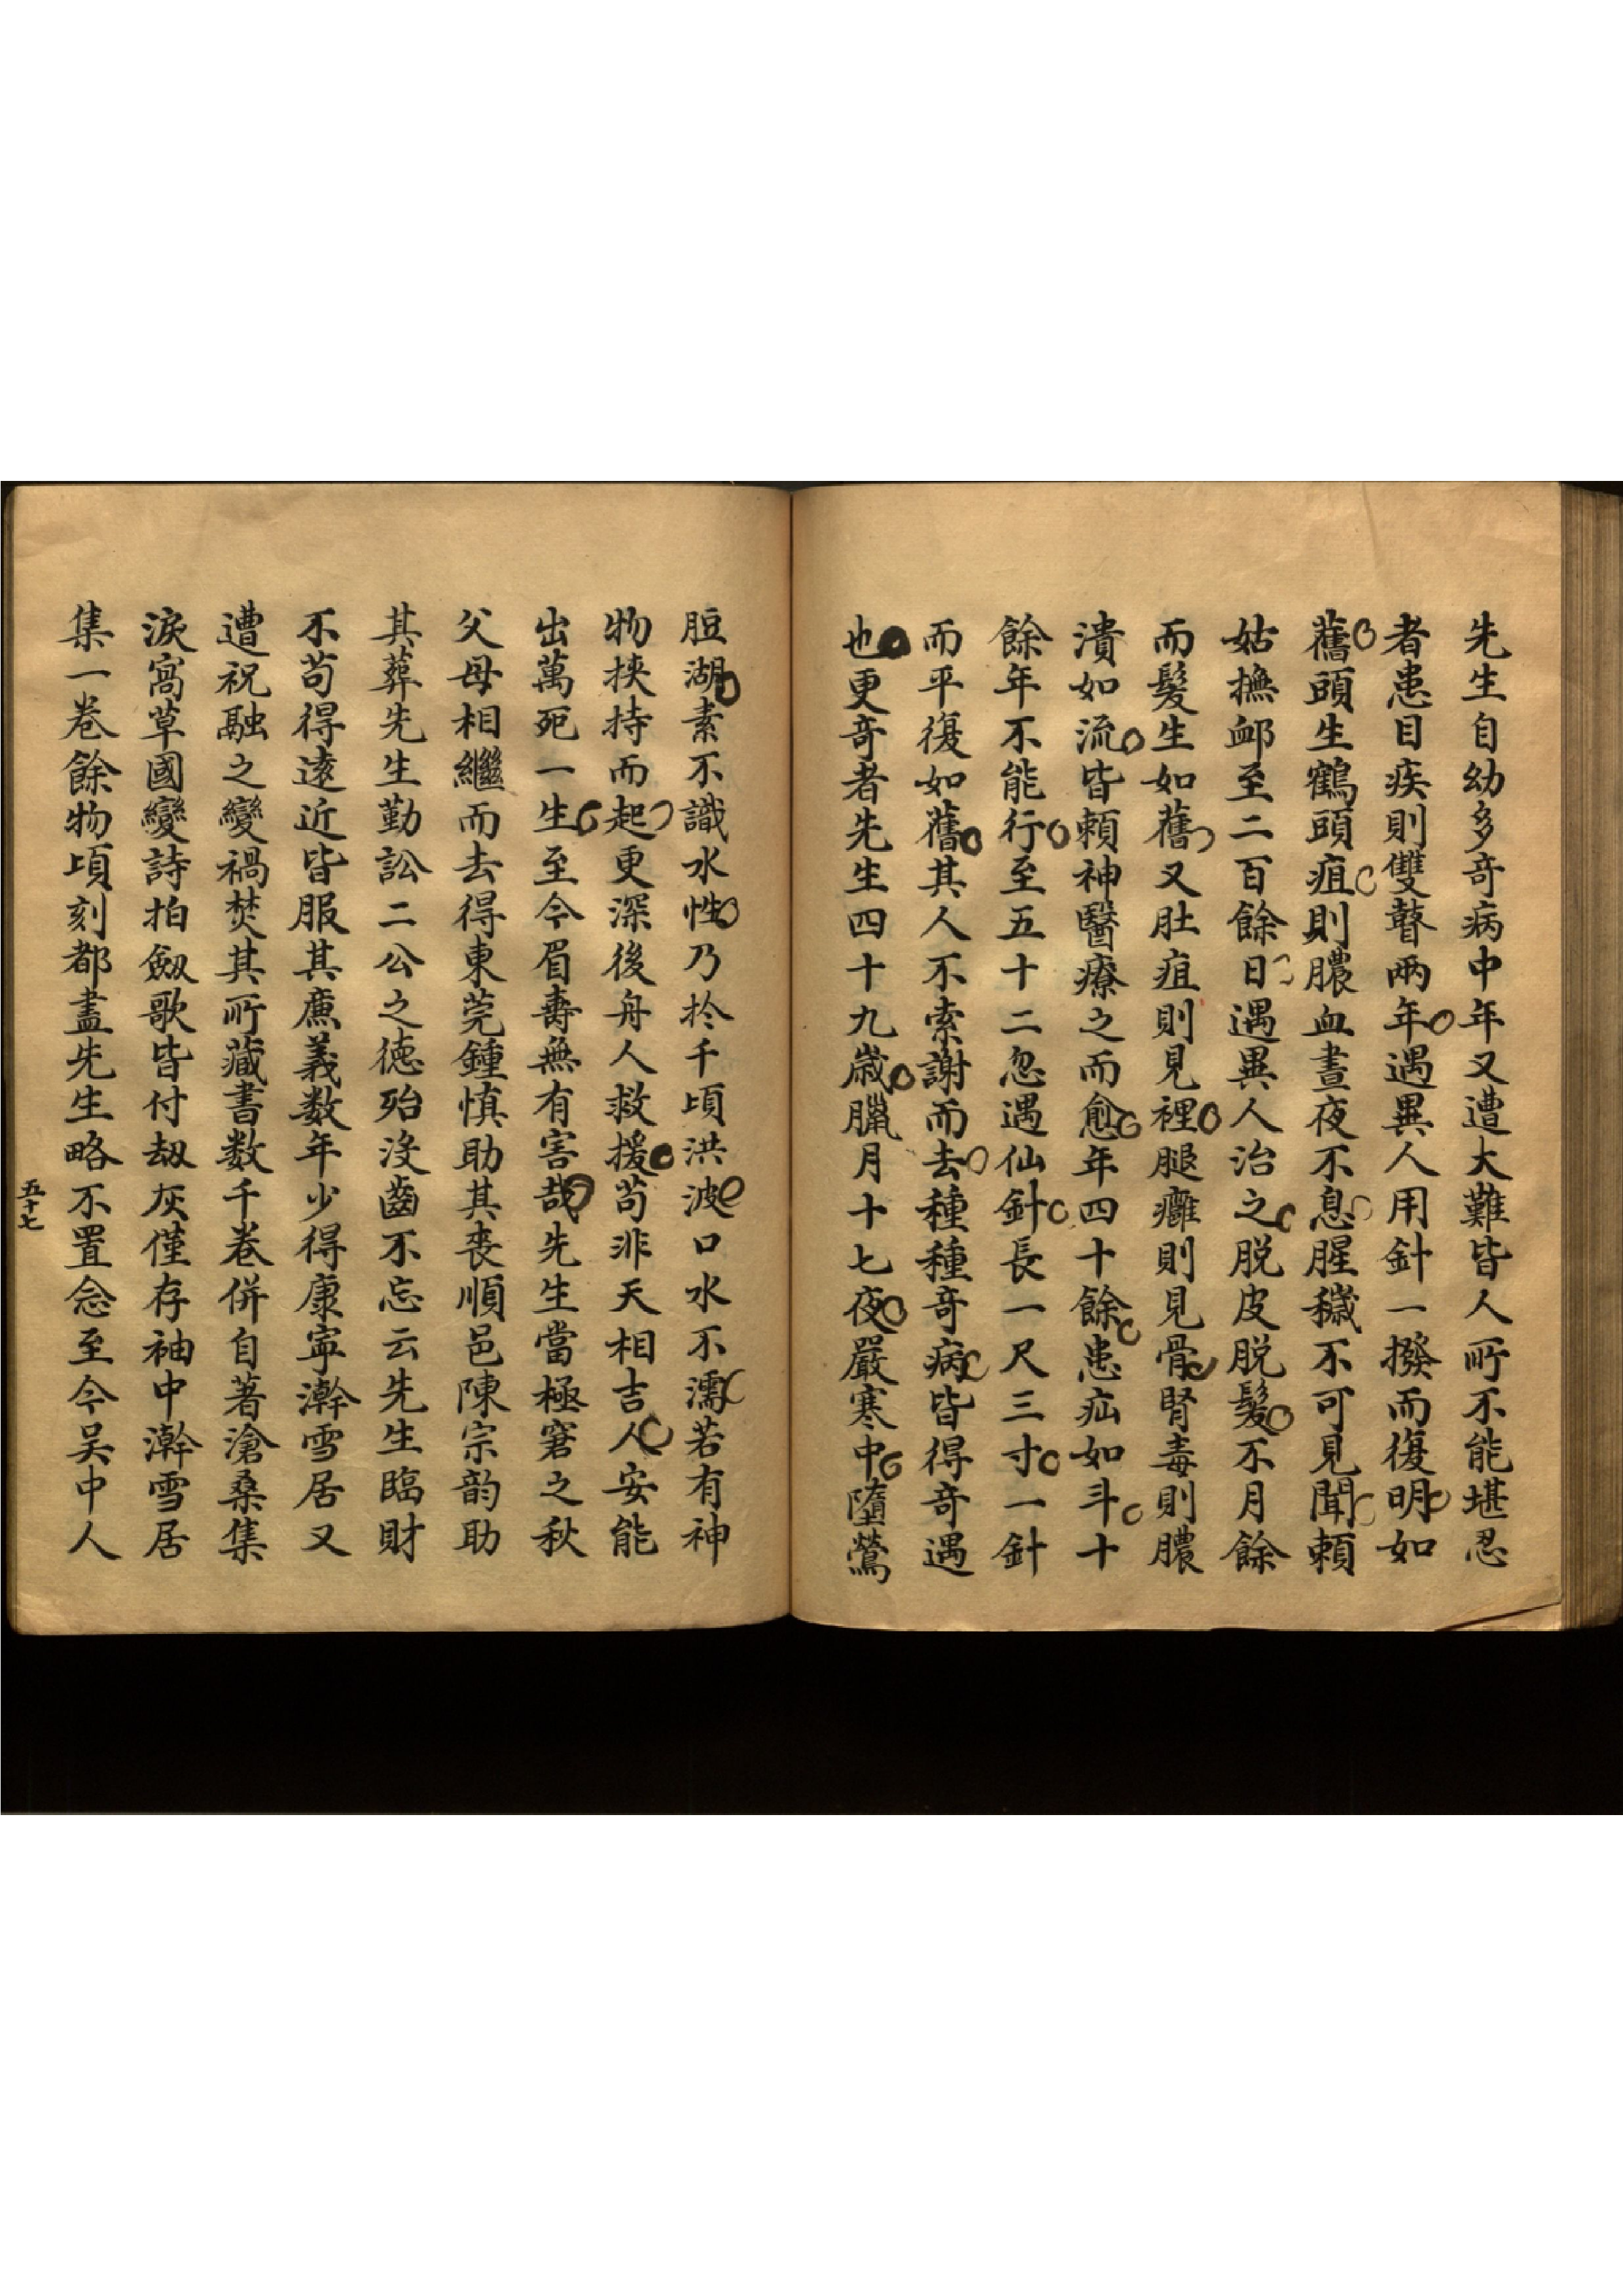 先生自幼多奇病中年又遭大難皆人所不能堪忍
者患目疾則雙瞽兩年遇異人用針一撥而復明如
舊頭生鶴頭疽則膿血晝夜不息腥穢不可見聞賴
姑撫䘏至二百餘日遇異人治之脱皮脱髮不月餘
而髮生如舊又肚疽則見裡腿癰則見骨腎毒則膿
潰如流皆賴神醫療之而愈年四十餘患疝如斗十
餘年不能行至五十二忽遇仙針長一尺三寸一針
而平復如舊其人不索謝而去種種奇病皆得奇遇
也更奇者先生四十九歲臘月十七夜嚴寒中墮鶯
脰湖素不識水性乃於千頃洪波口水不濡若有神
物挾持而起更深後舟人救援苟非天相吉人安能
出萬死一生至今眉壽無有害哉先生當極窘之秋
父母相繼而去得東莞鍾慎助其喪順邑陳宗韵助
其葬先生勤訟二公之德殆沒齒不忘云先生臨財
不苟得遠近皆服其廉義数年少得康寧澣雪居又
遭祝融之變禍焚其所藏書数千卷併自著滄桑集
淚窩草國變詩拍劔歌皆付刼灰僅存袖中澣雪居
集一卷餘物頃刻都盡先生略不置念至今吴中人
五十七